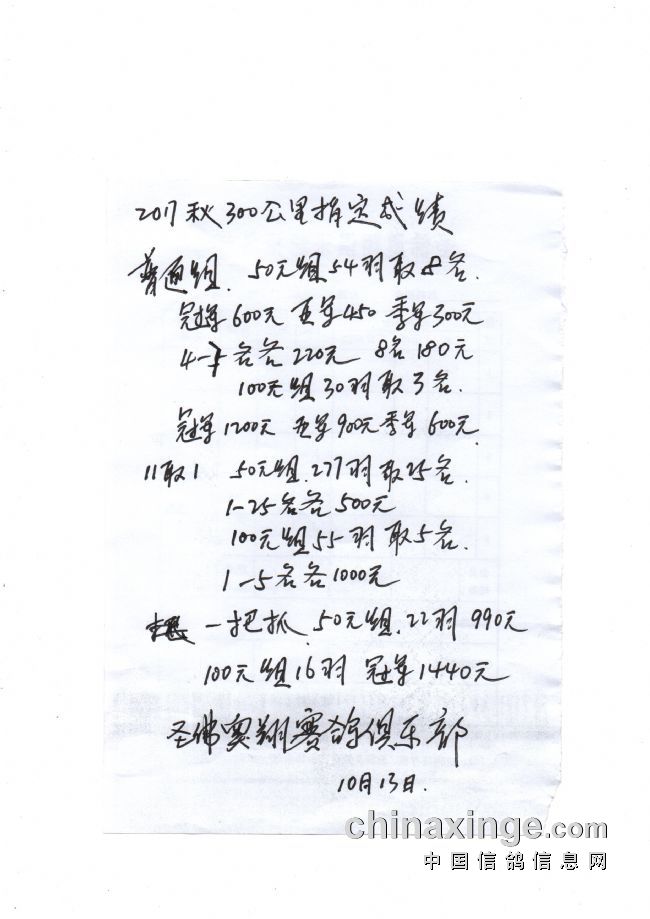 2017秋300公里指定成绩
普通组.50元组54羽取8名.
冠军600元 亚军450 季军300元
4-7名各220元 8名180元
100元组30羽取3名.
冠军1200元 亚军900元季军600元.
11取1 50元组.277羽取25名.
1-25名各500元
100元组55羽取5名.
1-5名各1000元
一把抓.50元组.22羽990元
100元组16羽 冠军1440元
圣佛奥翔赛鸽俱乐部
10月13日.
chinaxinge.com
中国信鸽信息网